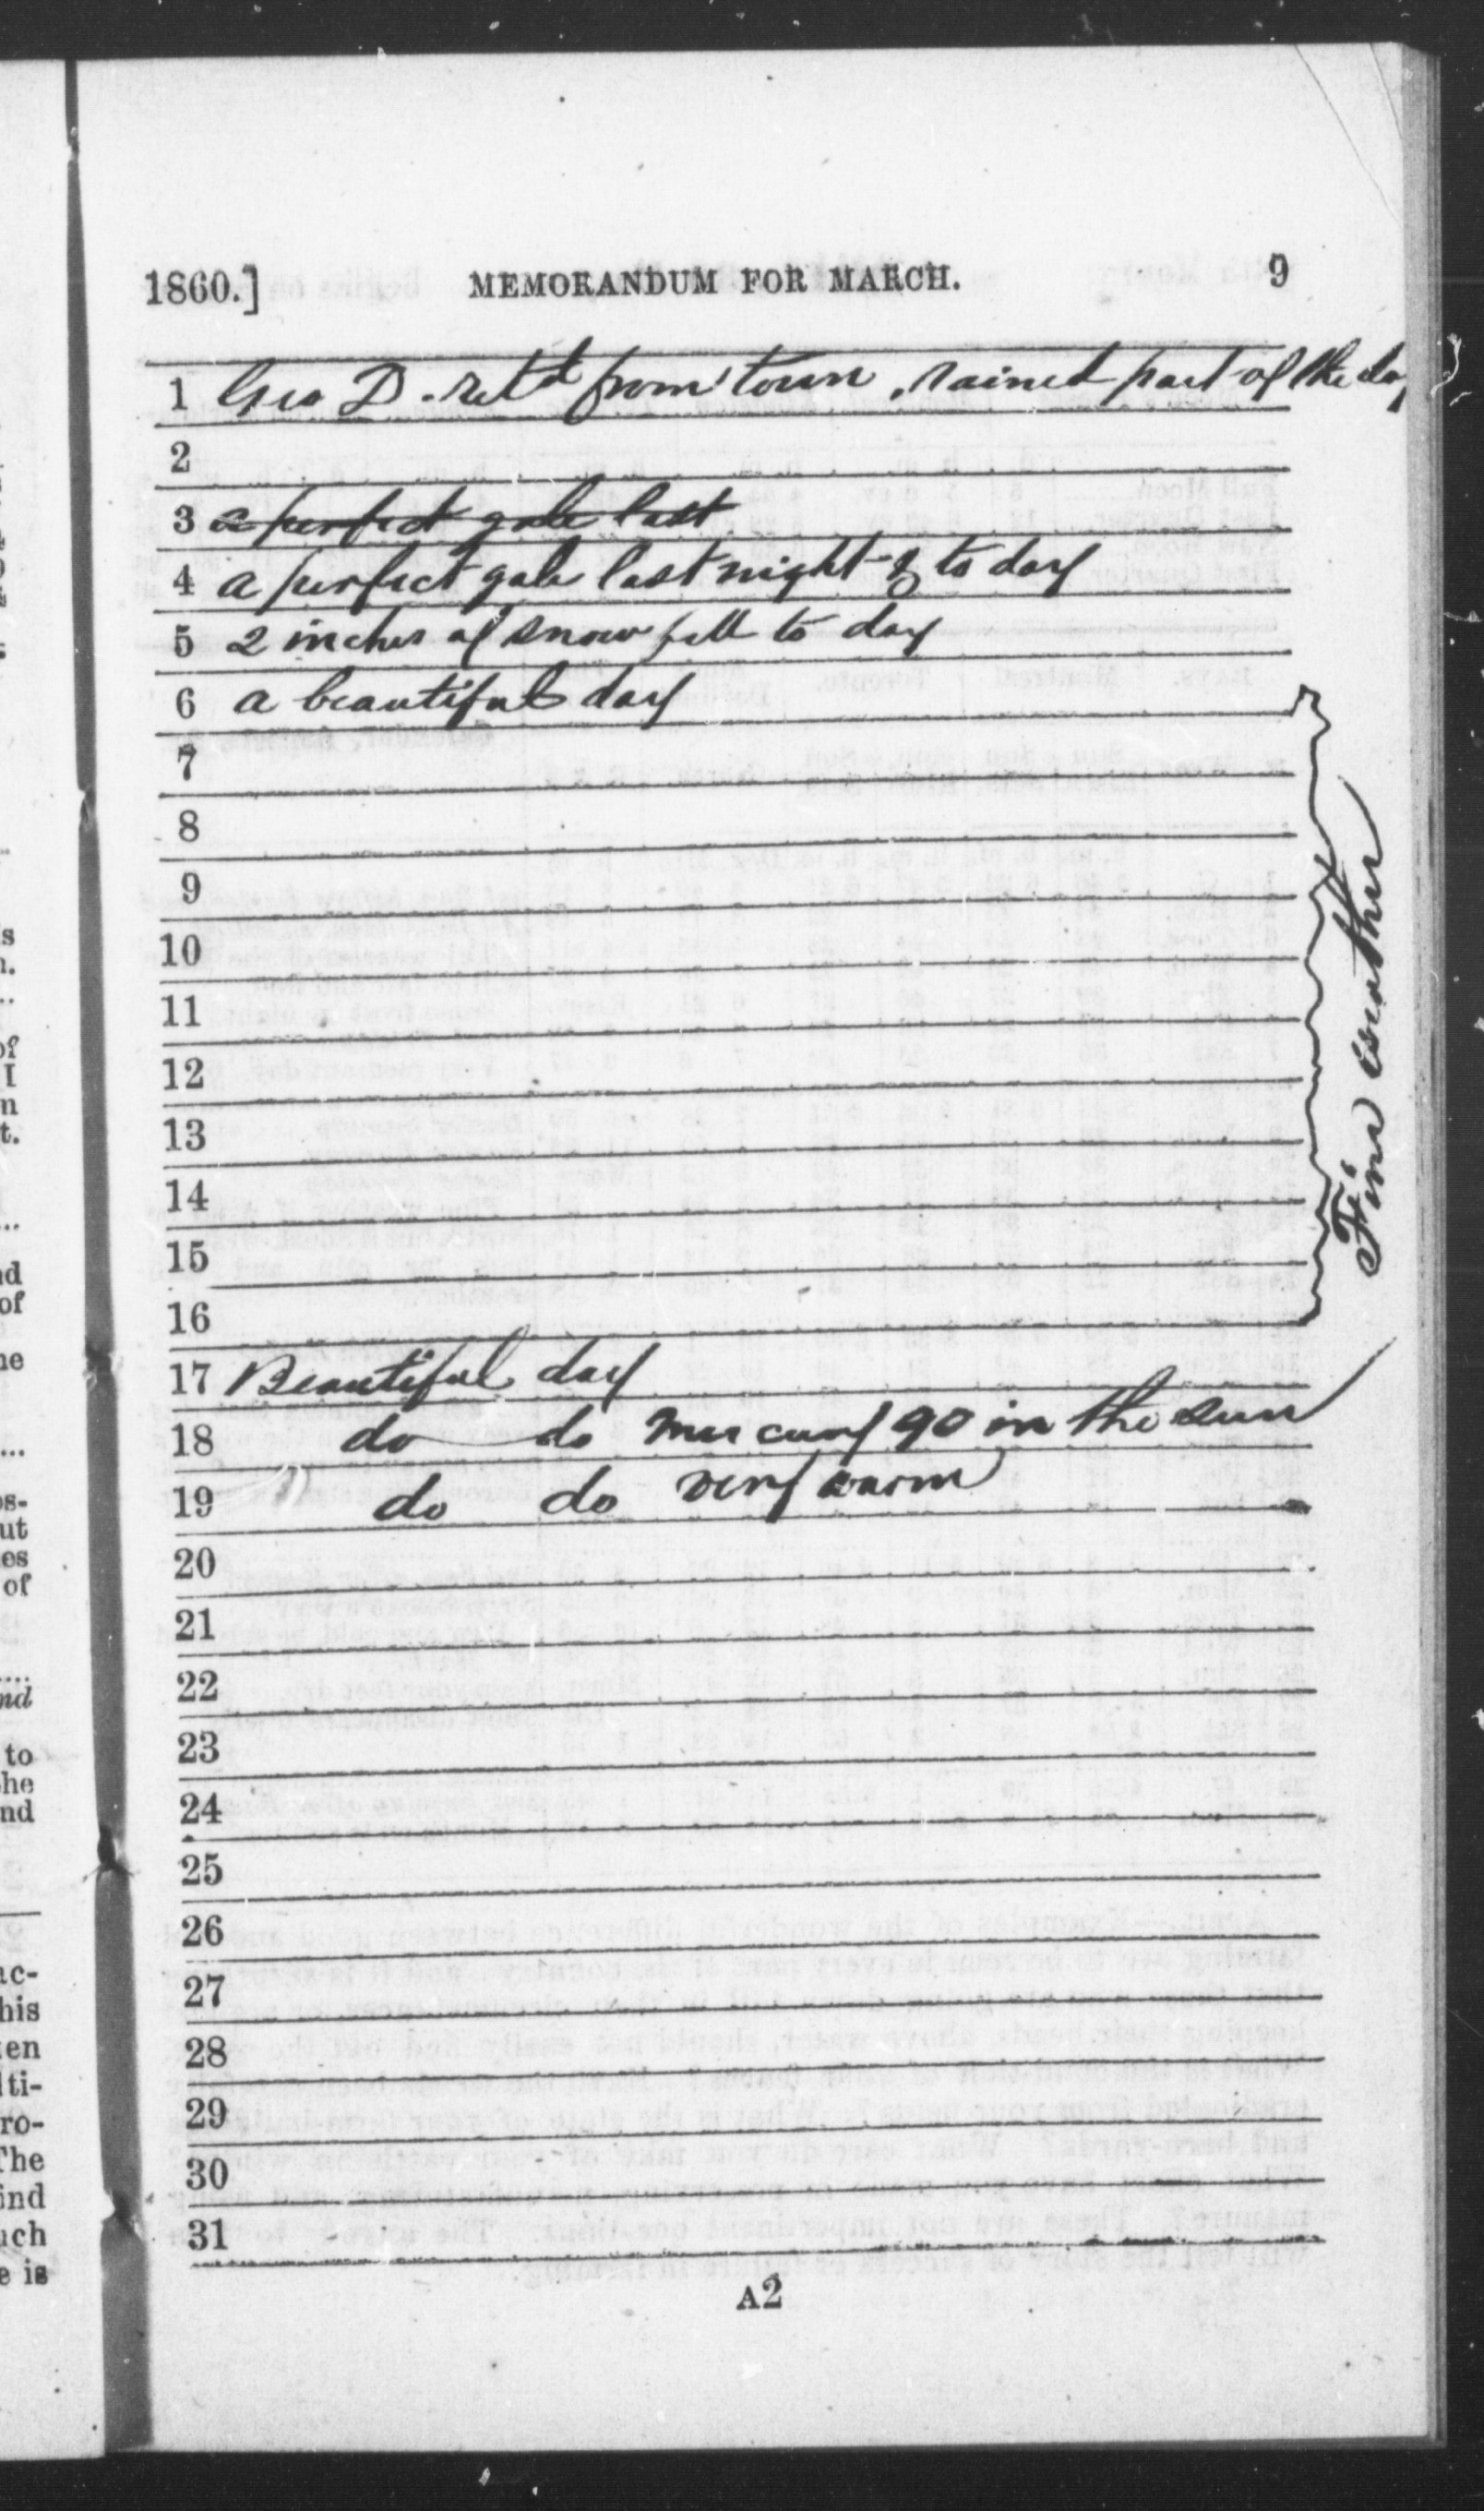 1860.] MEMORANDUM FOR MARCH. 9
1 Geo D. retd from town, rained part of the day
2
3 a perfect gale last
4 a perfect gale last night & to day
5 2 inches of snow fell to day
6 a beautiful day
7
8
9
10
11
12
13
14
15
16
Fine weather
17 Beautiful day
18 do do Mercury 90 in the sun
19 do do very warm
20
21
22
23
24
25
26
27
28
29
30
31
A2